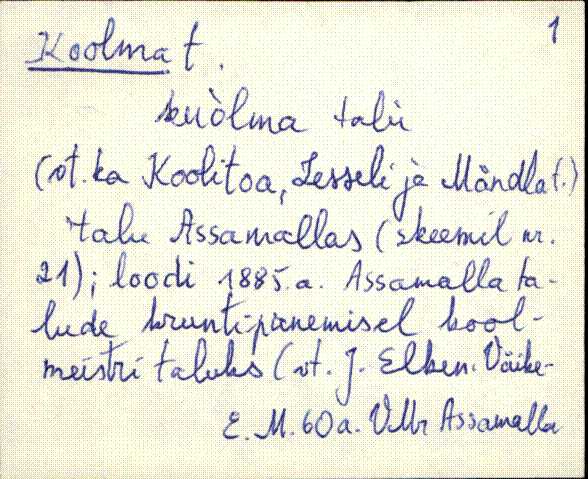 1
Koolma t.
kuòlma talu
(vt. ka Koolitoa, Sesseli ja Mändla t.)
talu Assamallas (skeemil nr.
21); loodi 1885. a. Assamalla ta-
lude kruntipanemisel kool-
meistri taluks (vt. J. Elken. Väike-
E. M. 60 a. VMr Assamalla